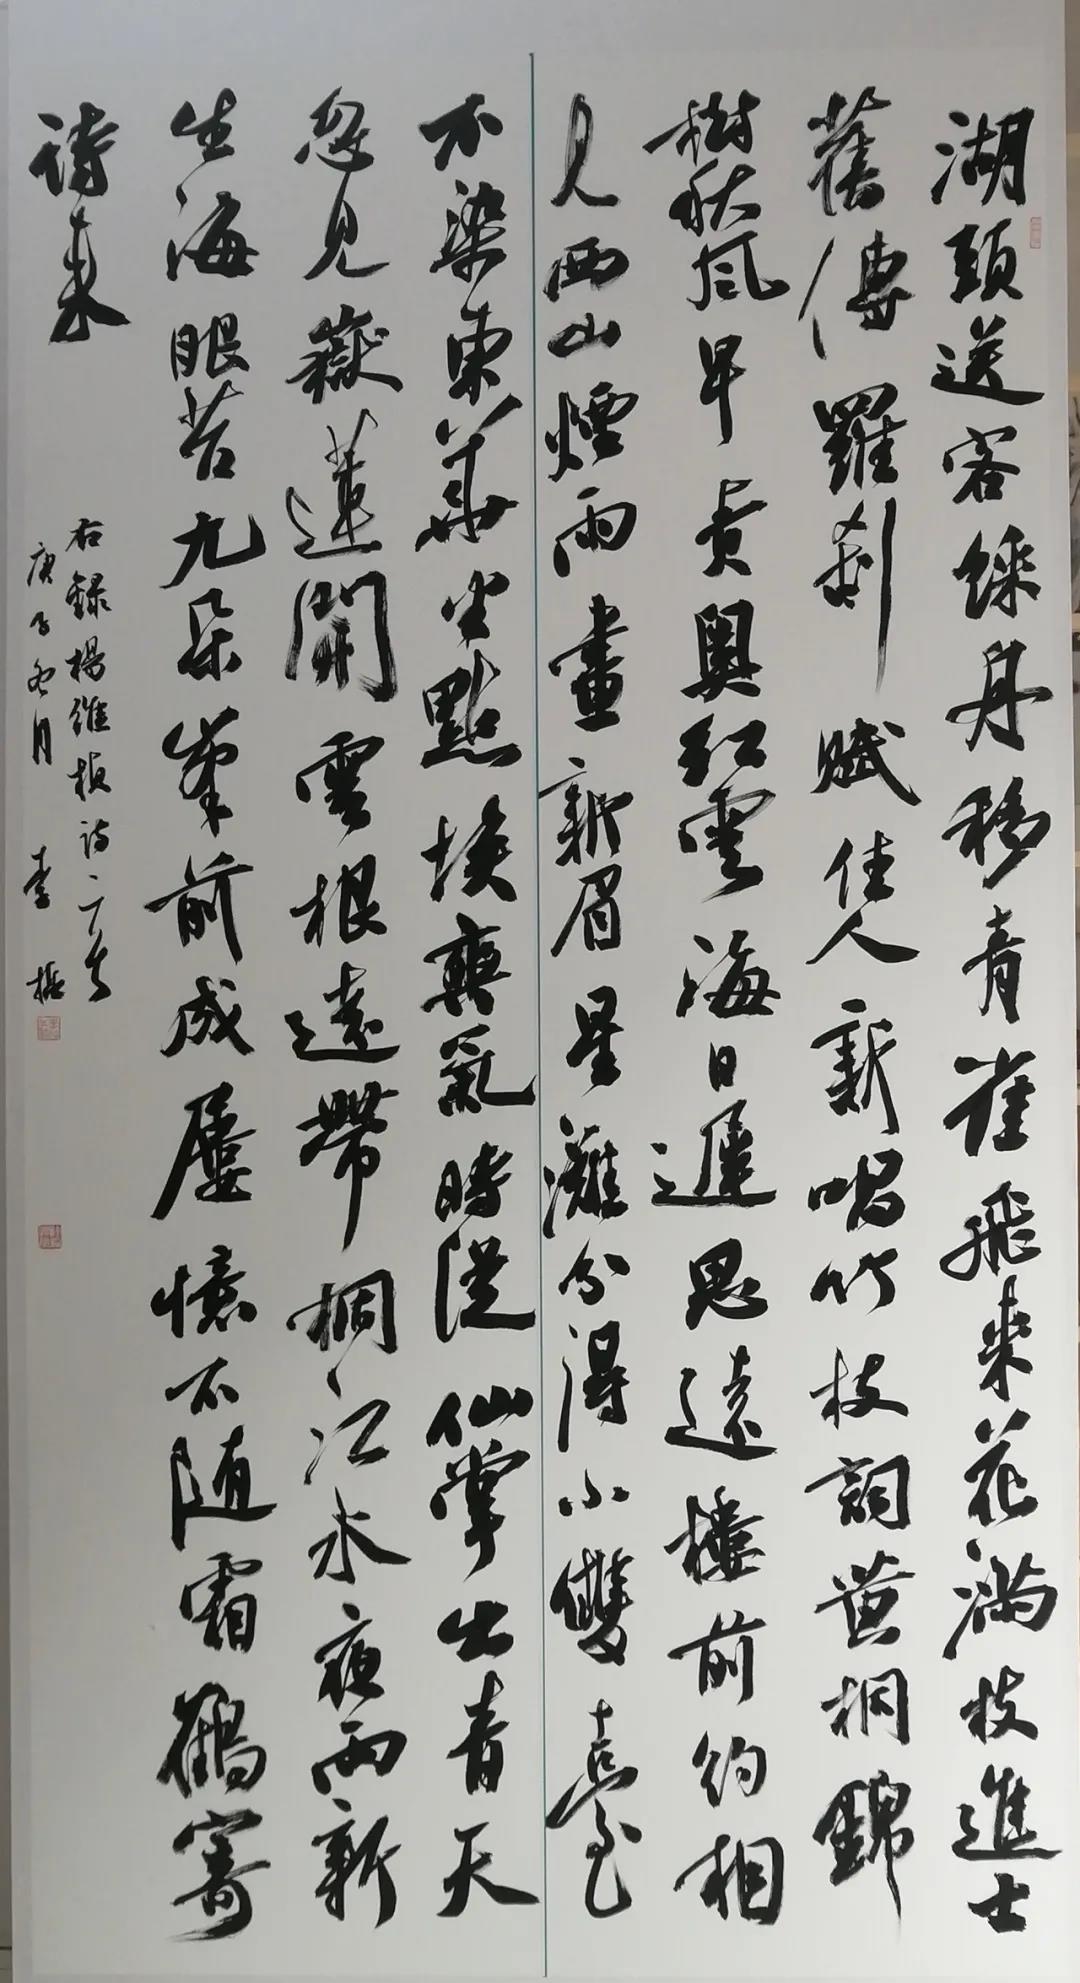 湖頭送客綵舟移青雀飛來花滿枝進士
舊傳羅刹賦佳人新唱竹枝詞黄桐錦
樹秋風早貢輿紅雲海日遲思遠樓前約相
見西山煙雨畫新眉星灘分得小雙臺
不染東華半點埃爽氣時從仙掌出青天
忽見嶽蓮開雲根遠帶桐江水夜雨新
生海眼苔九朵峯前成屢憶不随霜鶴寄
詩来
右録楊維楨詩二首
庚子冬月 李